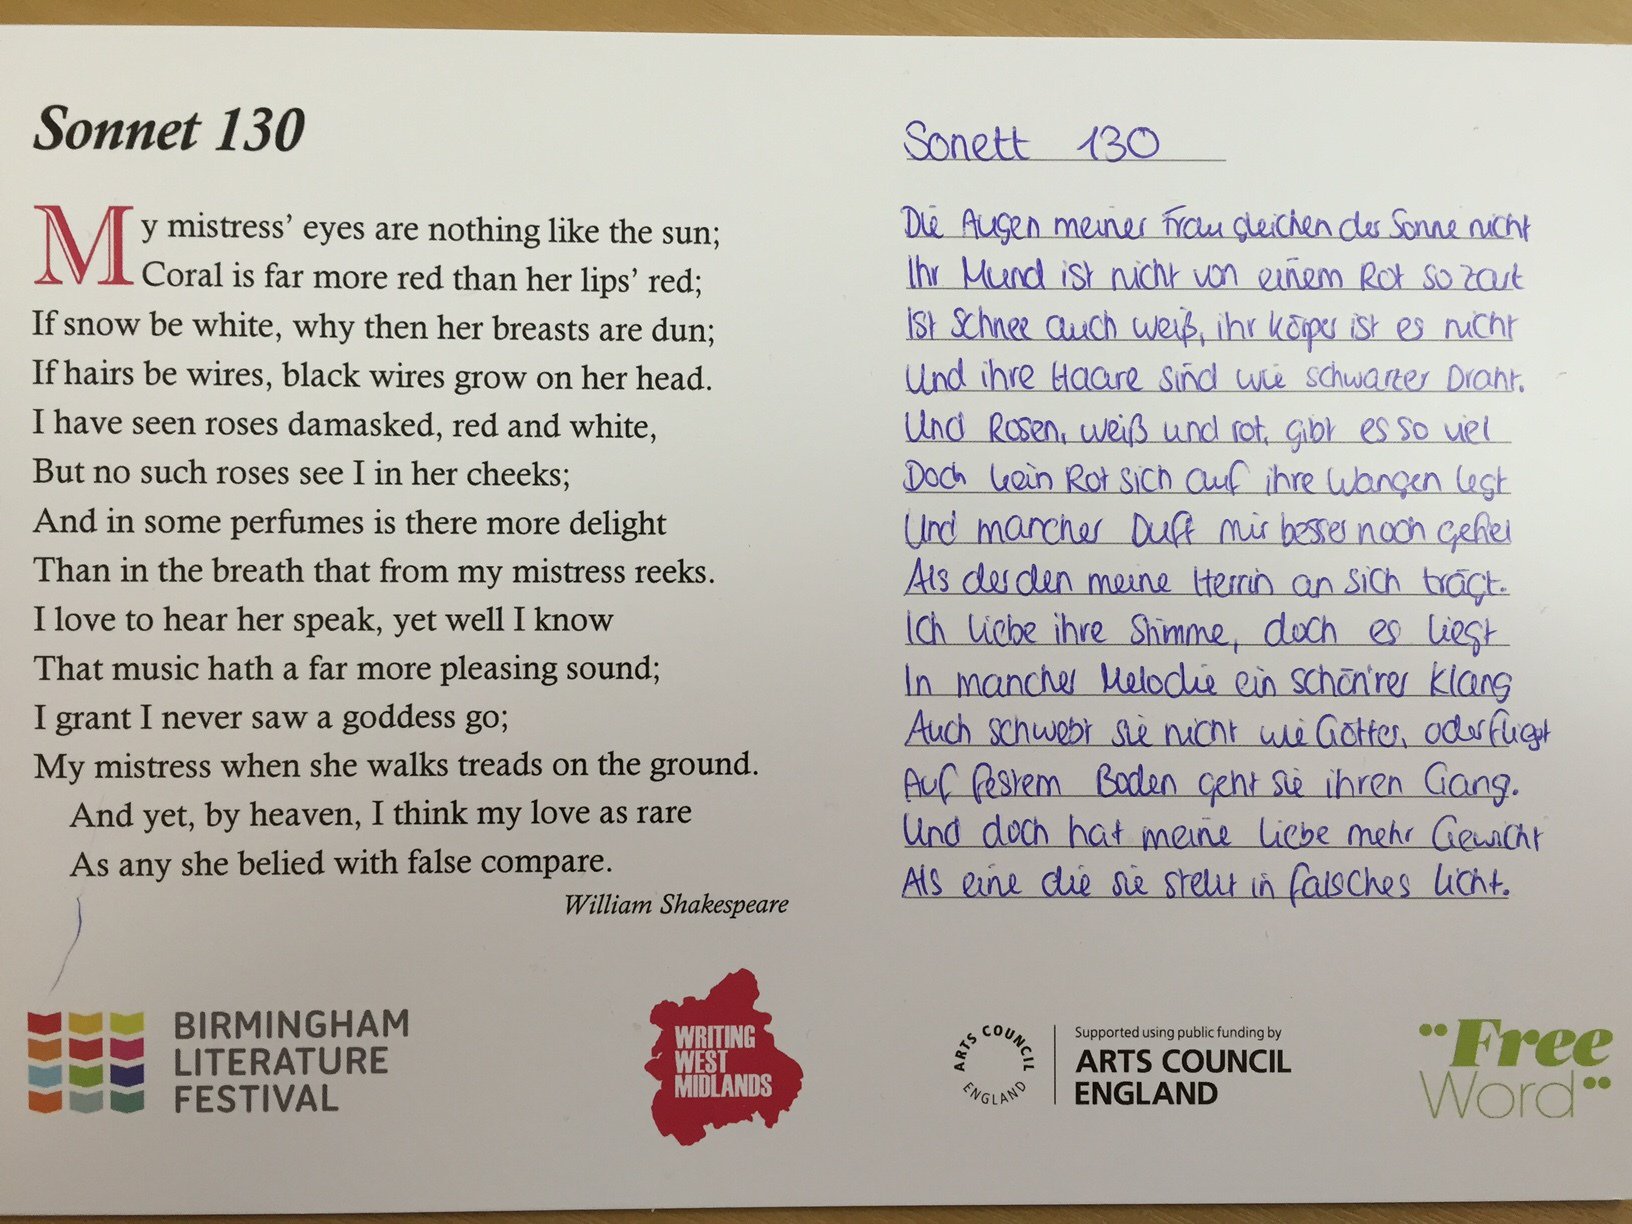 Sonnet 130
My mistress’ eyes are nothing like the sun;
Coral is far more red than her lips’ red;
If snow be white, why then her breasts are dun;
If hairs be wires, black wires grow on her head.
I have seen roses damasked, red and white,
But no such roses see I in her cheeks;
And in some perfumes is there more delight
Than in the breath that from my mistress reeks.
I love to hear her speak, yet well I know
That music hath a far more pleasing sound;
I grant I never saw a goddess go;
My mistress when she walks treads on the ground.
And yet, by heaven, I think my love as rare
As any she belied with false compare.
William Shakespeare
Sonett 130
Die Augen meiner Frau gleichen der Sonne nicht
Ihr Mund ist nicht von einem Rot so zart
Ist Schnee auch weiß, ihr Körper ist es nicht
Und ihre Haare sind wie schwarzer Draht.
Und Rosen, weiß und rot, gibt es so viel
Doch kein Rot sich auf ihre Wangen legt
Und mancher Duft mir besser noch gefiel
Als der den meine Herrin an sich trägt.
Ich liebe ihre Stimme, doch es liegt
In mancher Melodie ein schön'rer Klang
Auch schwebt sie nicht wie Götter, oder fliegt
Auf festem Boden geht sie ihren Gang.
Und doch hat meine Liebe mehr Gewicht
Als eine die sie stellt in falsches Licht.
BIRMINGHAM
LITERATURE
FESTIVAL
WRITING
WEST
MIDLANDS
ARTS COUNCIL
ENGLAND
Supported using public funding by
ARTS COUNCIL
ENGLAND
Free
Word